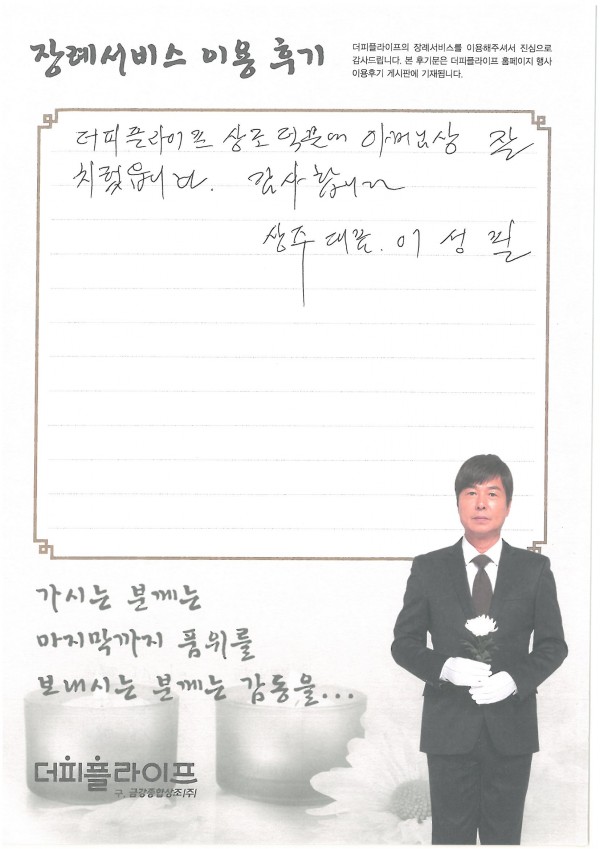 장례서비스 이용 후기
더피플라이프의 장례서비스를 이용해주셔서 진심으로
감사드립니다. 본 후기문은 더피플라이프 홈페이지 행사
이용후기 게시판에 기재됩니다.
더피플라이프 상조 덕분에 아버님상 잘
치렀읍니다. 감사합니다
상주 대표. 이성필
가시는 분께는
마지막까지 품위를
보내시는 분께는 감동을...
더피플라이프
구. 금강종합상조(주)